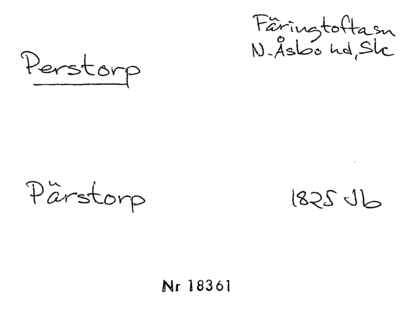 Färingtofta sn
N. Åsbo hd, Sk
Perstorp
Pärstorp
1825 Jb
Nr 18361